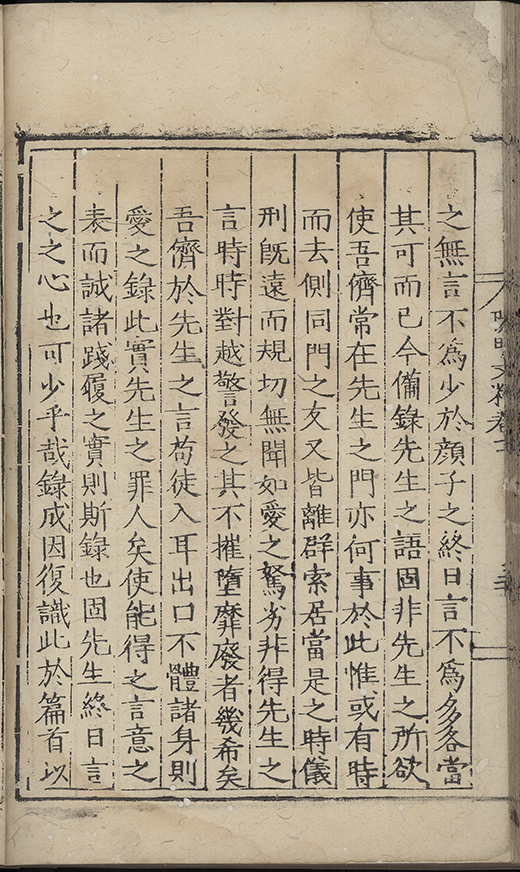 之無言不為少於顔子之終日言不為多各當
其可而已今備錄先生之語固非先生之所欲
使吾儕常在先生之門亦何事於此惟或有時
而去側同門之友又皆離群索居當是之時儀
刑旣遠而規切無聞如愛之駑劣非得先生之
言時時對越警發之其不摧墮靡廢者幾希矣
吾儕於先生之言苟徒入耳出口不體諸身則
愛之錄此實先生之罪人矣使能得之言意之
表而誠諸踐履之實則斯錄也固先生終日言
之之心也可少乎哉錄成因復識此於篇首以